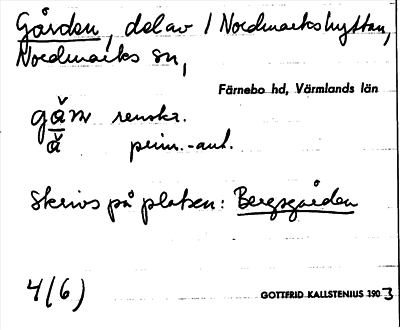 Gården, del av 1 Nordmarkshyttan,
Nordmarks sn,
Färnebo hd, Värmlands län
renskr.
prim.-ant.
Skrivs på platsen: Bergsgården
4(6)
GOTTFRID KALLSTENIUS 1903